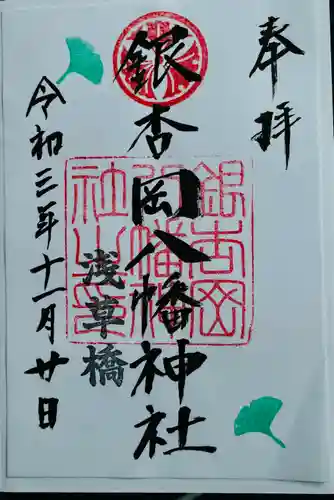 奉拝
銀杏岡八幡神社
浅草橋
令和三年十一月廿日
銀杏岡
八幡神
社之印